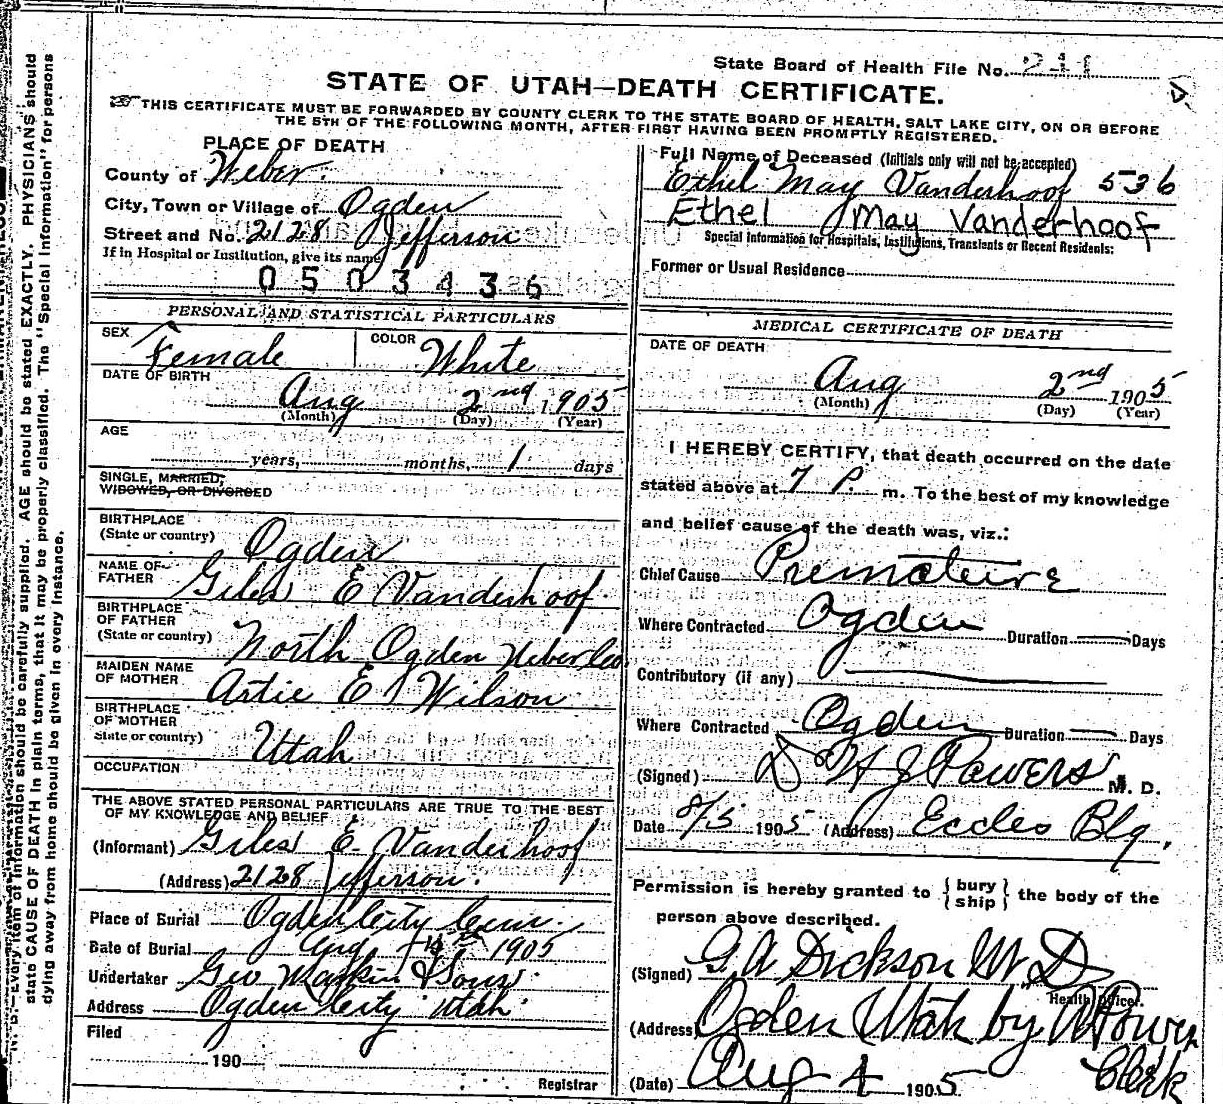 State Board of Health File No. 241
STATE OF UTAH—DEATH CERTIFICATE.
THIS CERTIFICATE MUST BE FORWARDED BY COUNTY CLERK TO THE STATE BOARD OF HEALTH, SALT LAKE CITY, ON OR BEFORE
THE 5TH OF THE FOLLOWING MONTH, AFTER FIRST HAVING BEEN PROMPTLY REGISTERED.
PLACE OF DEATH
County of Weber.
City, Town or Village of Ogden
Street and No. 2128 Jefferson
If in Hospital or Institution, give its name
0503436
Full Name of Deceased (Initials only will not be accepted)
Ethel May Vanderhoof 536
Ethel May Vanderhoof
Special Information for Hospitals, Institutions, Transients or Recent Residents:
Former or Usual Residence
PERSONAL AND STATISTICAL PARTICULARS
SEX Female COLOR White
DATE OF BIRTH
Aug 2nd 1905
(Month) (Day) (Year)
AGE
years, months, 1 days
SINGLE, MARRIED,
WIDOWED, OR DIVORCED
BIRTHPLACE
(State or country) Ogden
NAME OF
FATHER Giles E Vanderhoof
BIRTHPLACE
OF FATHER
(State or country) North Ogden Weber Co
MAIDEN NAME
OF MOTHER Artie E Wilson
BIRTHPLACE
OF MOTHER
State or country) Utah
OCCUPATION
THE ABOVE STATED PERSONAL PARTICULARS ARE TRUE TO THE BEST
OF MY KNOWLEDGE AND BELIEF
(Informant) Giles E. Vanderhoof
(Address) 2128 Jefferson.
Place of Burial Ogden City Cem.
Date of Burial Aug 4th 1905
Undertaker Geo & Sons
Address Ogden City Utah
Filed
190
Registrar
MEDICAL CERTIFICATE OF DEATH
DATE OF DEATH
Aug 2nd 1905
(Month) (Day) (Year)
I HEREBY CERTIFY, that death occurred on the date
stated above at 7 P. m. To the best of my knowledge
and belief cause of the death was, viz.:
Chief Cause Premature
Where Contracted Ogden Duration — Days
Contributory (if any) —
Where Contracted Ogden Duration — Days
(Signed) H J Powers M. D.
Date 8/5 1905 (Address) Eccles Blg.
Permission is hereby granted to { bury ship } the body of the
person above described.
(Signed) G A Dickson M D
Health Officer.
(Address) Ogden Utah by Powers
Clerk
(Date) Aug 4 1905.
state CAUSE OF DEATH in plain terms, that it may be properly classified. The "Special Information" for persons
dying away from home should be given in every instance.
Every item of information should be carefully supplied. AGE should be stated EXACTLY. PHYSICIANS should